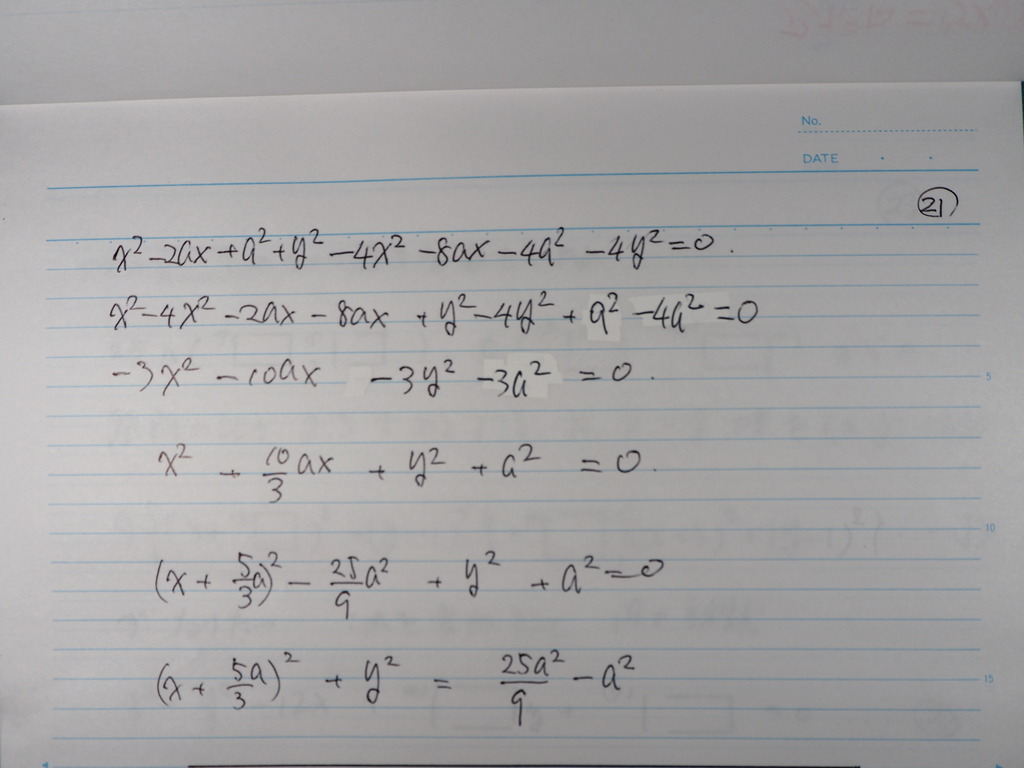 No.
DATE
21
x² - 2ax + a² + y² - 4x² - 8ax - 4a² - 4y² = 0.
x² - 4x² - 2ax - 8ax + y² - 4y² + a² - 4a² = 0
-3x² - 10ax - 3y² - 3a² = 0.
5
x² + 10/3 ax + y² + a² = 0.
10
(x + 5/3 a)² - 25/9 a² + y² + a² = 0
(x + 5a/3)² + y² = 25a²/9 - a²
15